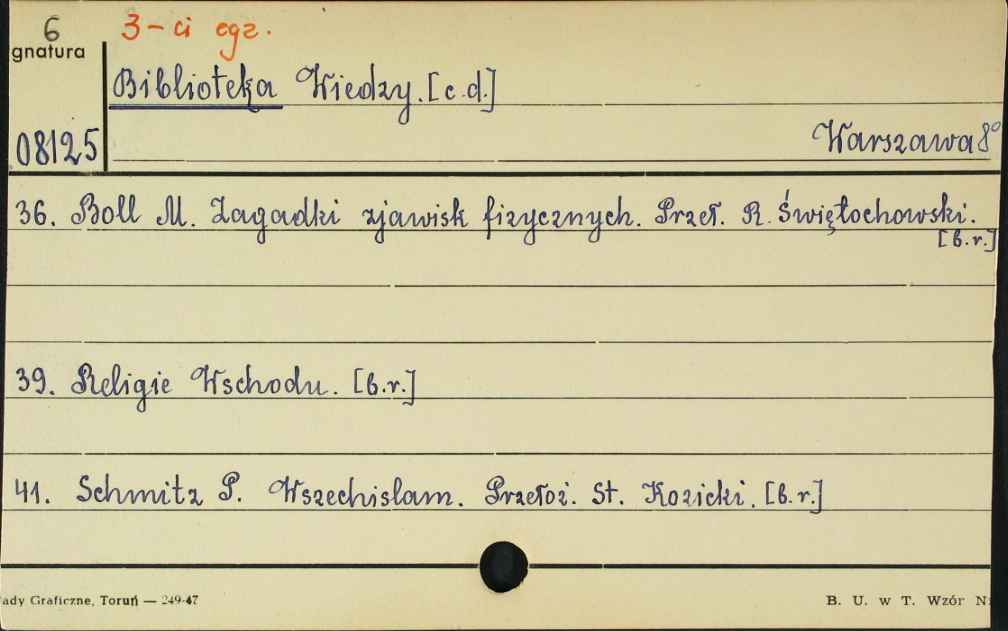 6 3-ci egz.
gnatura
Biblioteka Wiedzy. [c.d.]
08125
Warszawa 8°
36. Boll M. Zagadki zjawisk fizycznych. Przeł. R. Świętochowski.
[b.r.]
39. Religie Wschodu. [b.r.]
41. Schmitz P. Wszechislam. Przełoż. St. Kozicki. [b.r.]
ady Graficzne, Toruń — 249-47
B. U. w T. Wzór N